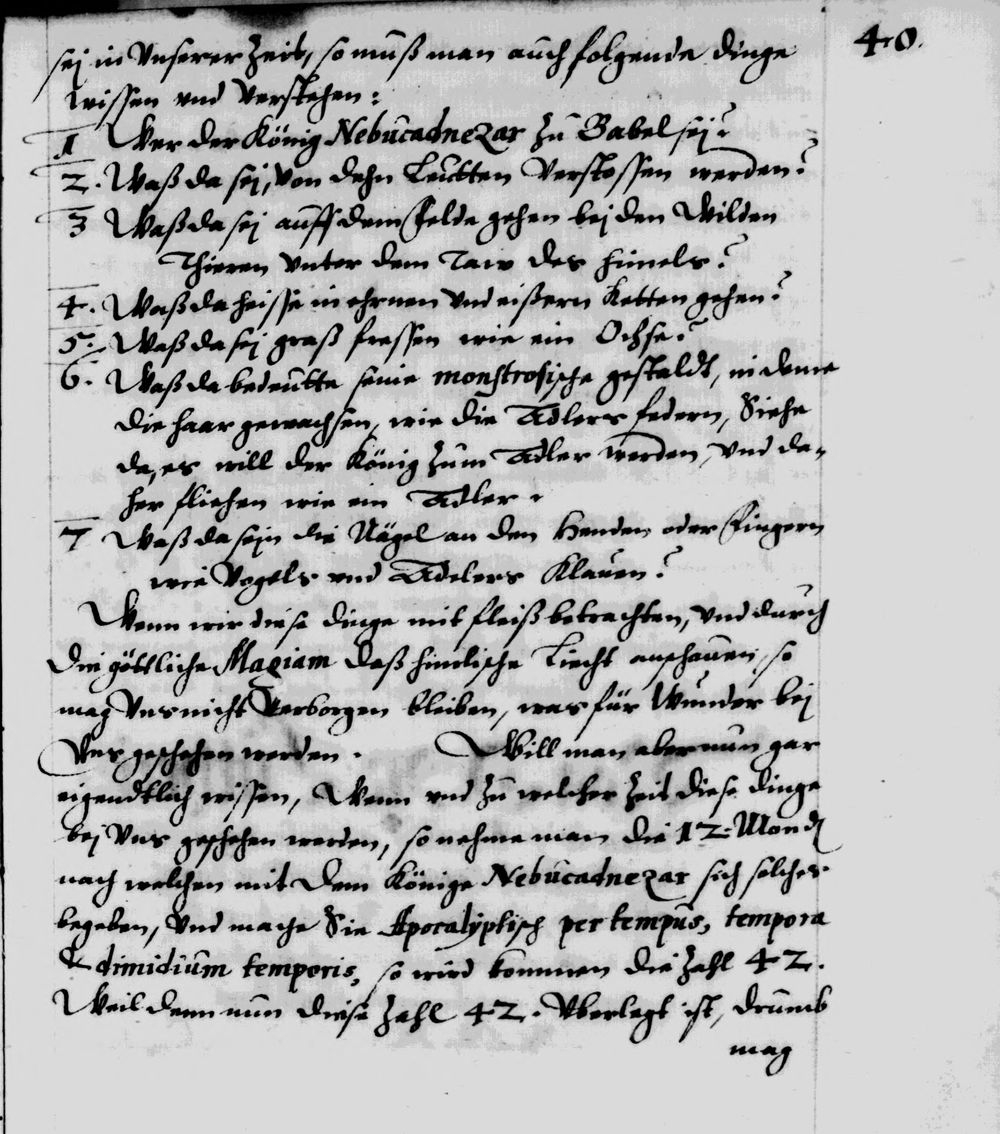 40.
sej in Unserer Zeit, so muß man auch folgende dinge
wissen und Verstehen:
1 Wer der König Nebucadnezar zu Babel sej?
2. Waß da sej, von dehn Leutten Verstossen werden?
3 Waß da sej auff dem Felde gehen bej den Wilden
Thieren Unter dem Taw des himels?
4. Waß da heisse in ehrnen Und eißern Ketten gehen?
5. Waß da sej graß fressen wie ein Ochse?
6. Waß da bedeutte seine monstrosische gestaldt, in deme
die haar gewachsen, wie die Adlers federn, Siehe
da, es will der König zum Adler werden, Und da-
her fliehen wie ein Adler.
7 Waß da sejn die Nägel an den Henden oder Fingern
wie Vogels und Adelers Klauen?
Wenn wir diese dinge mit fleiß betrachten, Und durch
die göttliche Magiam daß himlische Liecht anschauen, so
mag Uns nicht Verborgen bleiben, was für Wunder bej
Uns geschehen werden. Will man aber nun gar
eigendtlich wissen, Wenn und zu welcher Zeit diese dinge
bej Uns geschehen werden, so nehme man die 12. Mond
nach welchen mit dem Könige Nebucadnezar sich solches
begeben, Und mache Sie Apocalyptisch per tempus, tempora
& dimidium temporis, so wird kommen die Zahl 42.
Weil denn nun diese Zahl 42. Uberlegt ist, drumb
mag